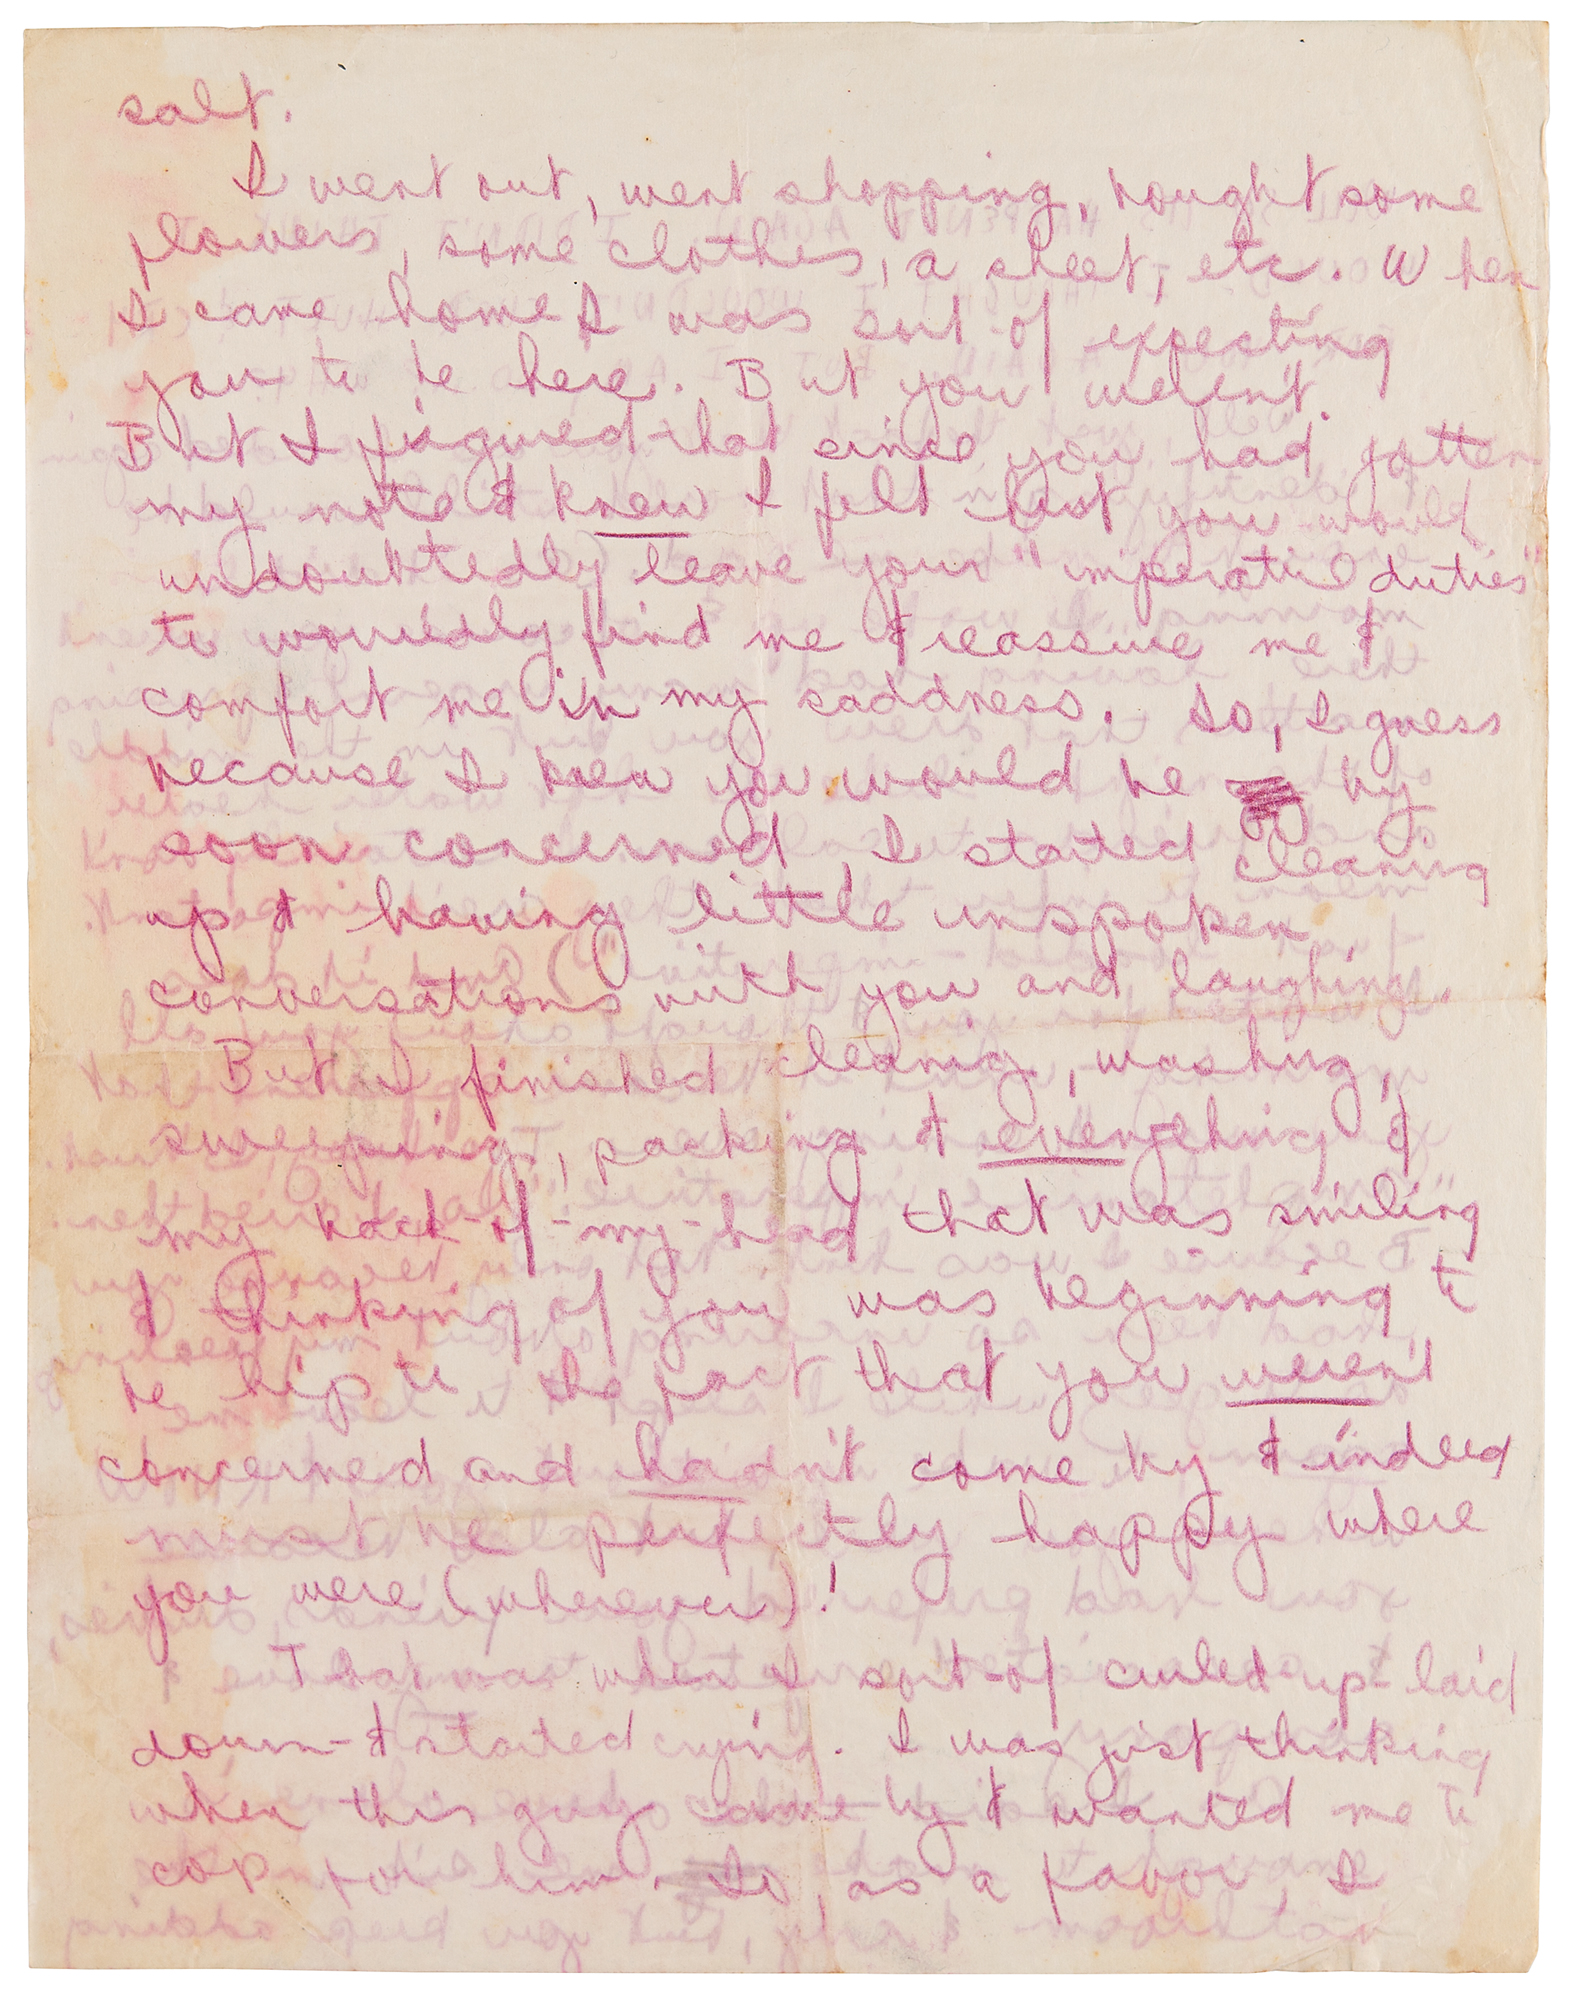 salt.
I went out, went shopping, bought some
flowers, some clothes, a sheet, etc. When
I came home I was sort of expecting
you to be here. But you weren't.
But I figured that since you had gotten
my note & knew I felt hurt you would
undoubtedly leave your "imperative duties"
to worriedly find me & reassure me &
comfort me in my saddness. So, I guess
because I knew you would be by
soon concerned, I started cleaning
up & having little unspoken
conversations with you and laughing.
But I finished cleanig, washing,
sweeping, packing & everything &
my back-of-my-head that was smiling
& thinking of you was beginning to
be hip to the fact that you weren't
concerned and hadn't come by & indeed
must be perfectly happy where
you were (wherever)!
That was when I sort-of curled-up-laid
down-& started crying. I was just thinking
when this guy came by & wanted me to
cop for him. So, as a favor I